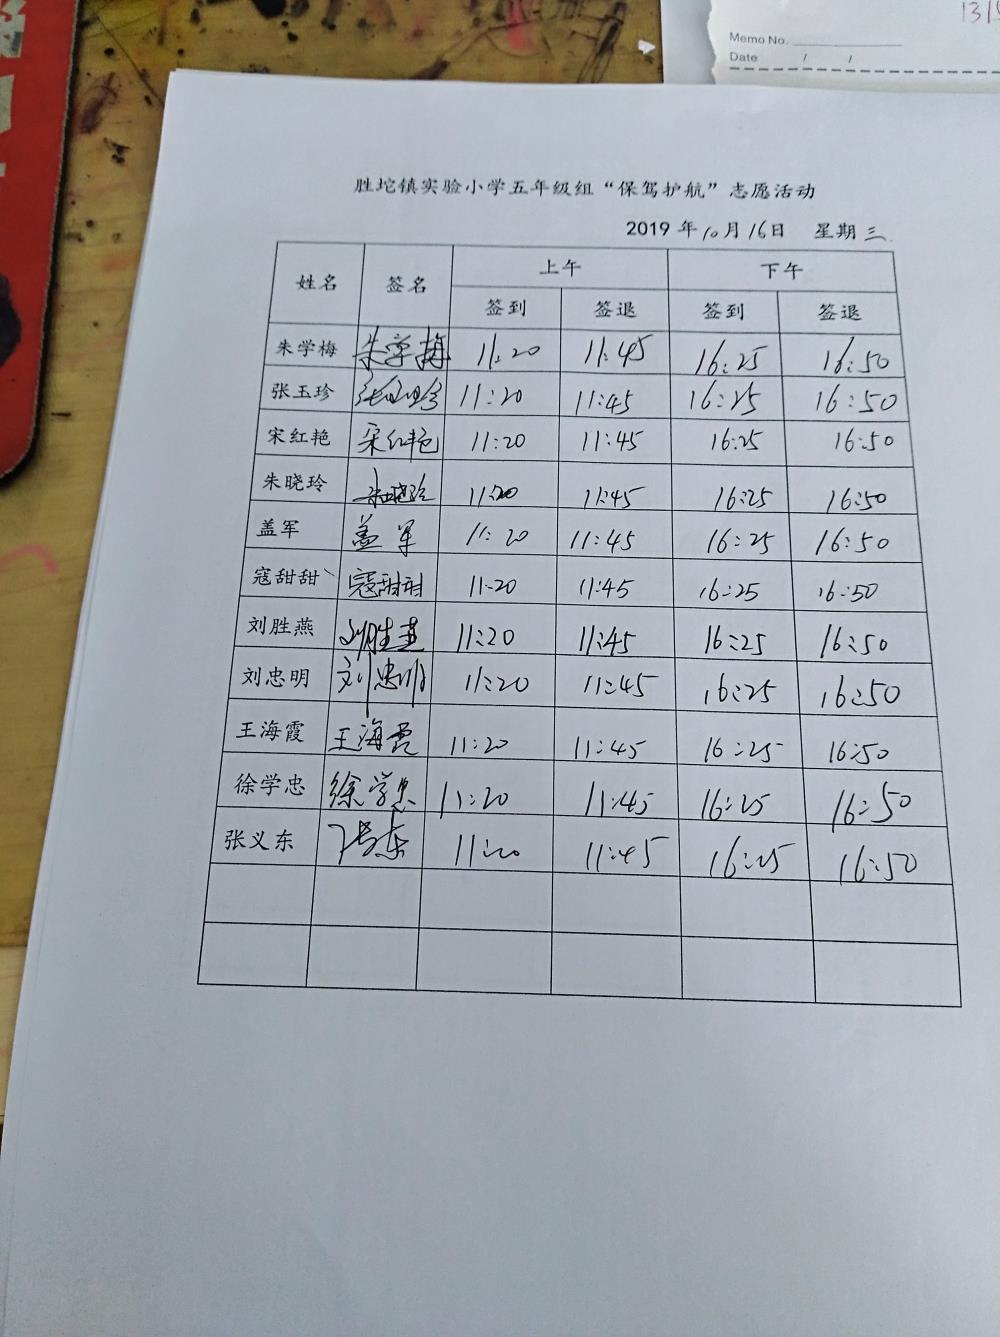 1315
Memo No.
Date / /
胜坨镇实验小学五年级组“保驾护航”志愿活动
2019 年10月16日 星期三
姓名 签名 上午 下午
签到 签退 签到 签退
朱学梅 朱学梅 11:20 11:45 16:25 16:50
张玉珍 张玉珍 11:20 11:45 16:25 16:50
宋红艳 宋红艳 11:20 11:45 16:25 16:50
朱晓玲 朱晓玲 11:20 11:45 16:25 16:50
盖军 盖军 11:20 11:45 16:25 16:50
寇甜甜 寇甜甜 11:20 11:45 16:25 16:50
刘胜燕 刘胜燕 11:20 11:45 16:25 16:50
刘忠明 刘忠明 11:20 11:45 16:25 16:50
王海霞 王海霞 11:20 11:45 16:25 16:50
徐学忠 徐学忠 11:20 11:45 16:25 16:50
张义东 张义东 11:20 11:45 16:25 16:50